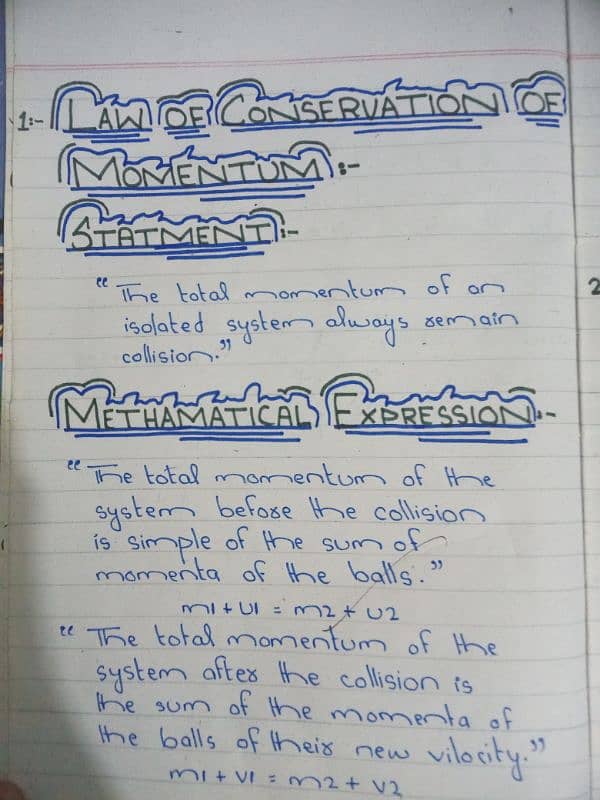 1:- LAW OF CONSERVATION OF
MOMENTUM :-
STATMENT:-
“ The total momentum of an
isolated system always remain
collision.”
METHAMATICAL EXPRESSION:-
“ The total momentum of the
system before the collision
is simple of the sum of
momenta of the balls.”
m1 + U1 = m2 + U2
“ The total momentum of the
system after the collision is
the sum of the momenta of
the balls of their new vilocity.”
m1 + V1 = m2 + V2
2